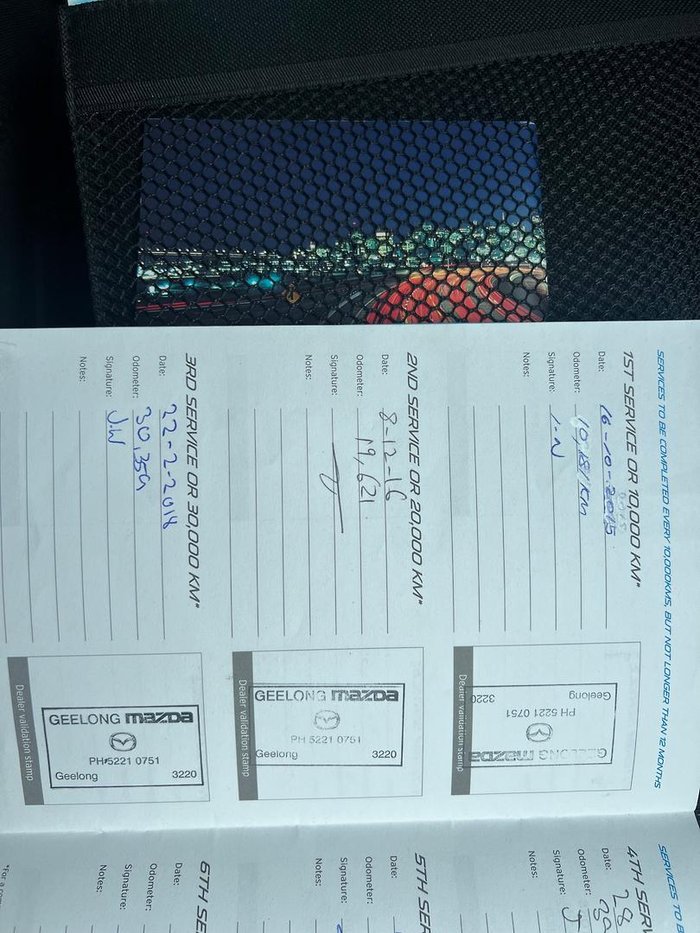 SERVICES TO BE COMPLETED EVERY 10,000KMS, BUT NOT LONGER THAN 12 MONTHS
1ST SERVICE OR 10,000 KM*
Date: 16-10-2015
Odometer: 10,151 km
Signature: J.N
Notes:
GEELONG mazda
PH 5221 0751
Geelong 3220
Dealer validation stamp
2ND SERVICE OR 20,000 KM*
Date: 8-12-16
Odometer: 19,621
Signature:
Notes:
GEELONG mazda
PH 5221 0751
Geelong 3220
Dealer validation stamp
3RD SERVICE OR 30,000 KM*
Date: 22-2-2018
Odometer: 30,359
Signature: J.W
Notes:
GEELONG mazda
PH 5221 0751
Geelong 3220
Dealer validation stamp
SERVICES TO B
4TH SERV
Date: 28
Odometer:
Signature: J
Notes:
5TH SER
Date:
Odometer:
Signature:
Notes:
6TH SE
Date:
Odometer:
Signature:
Notes:
*For a